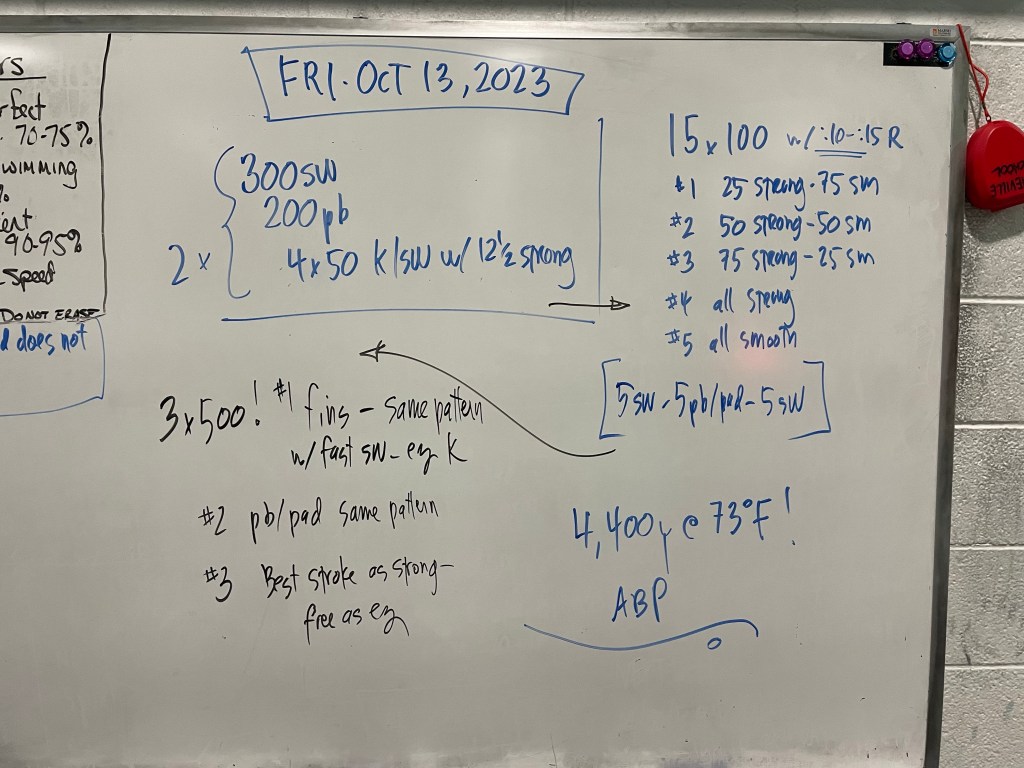 rs
rfect
70-75%
wimming
%
ient
90-95%
Speed
DO NOT ERASE
d does not
FRI. OCT 13, 2023
2 x
300 SW
200 pb
4 x 50 K/SW w/ 12½ strong
15 x 100 w/ :10-:15 R
#1 25 strong - 75 sm
#2 50 strong - 50 sm
#3 75 strong - 25 sm
#4 all strong
#5 all smooth
[5 SW - 5 pb/pad - 5 SW]
3 x 500! #1 fins - same pattern
w/ fast sw - ez K
#2 pb/pad same pattern
#3 Best stroke as strong -
free as ez
4,400y @ 73°F!
ABP
EVILLE
CHOOL